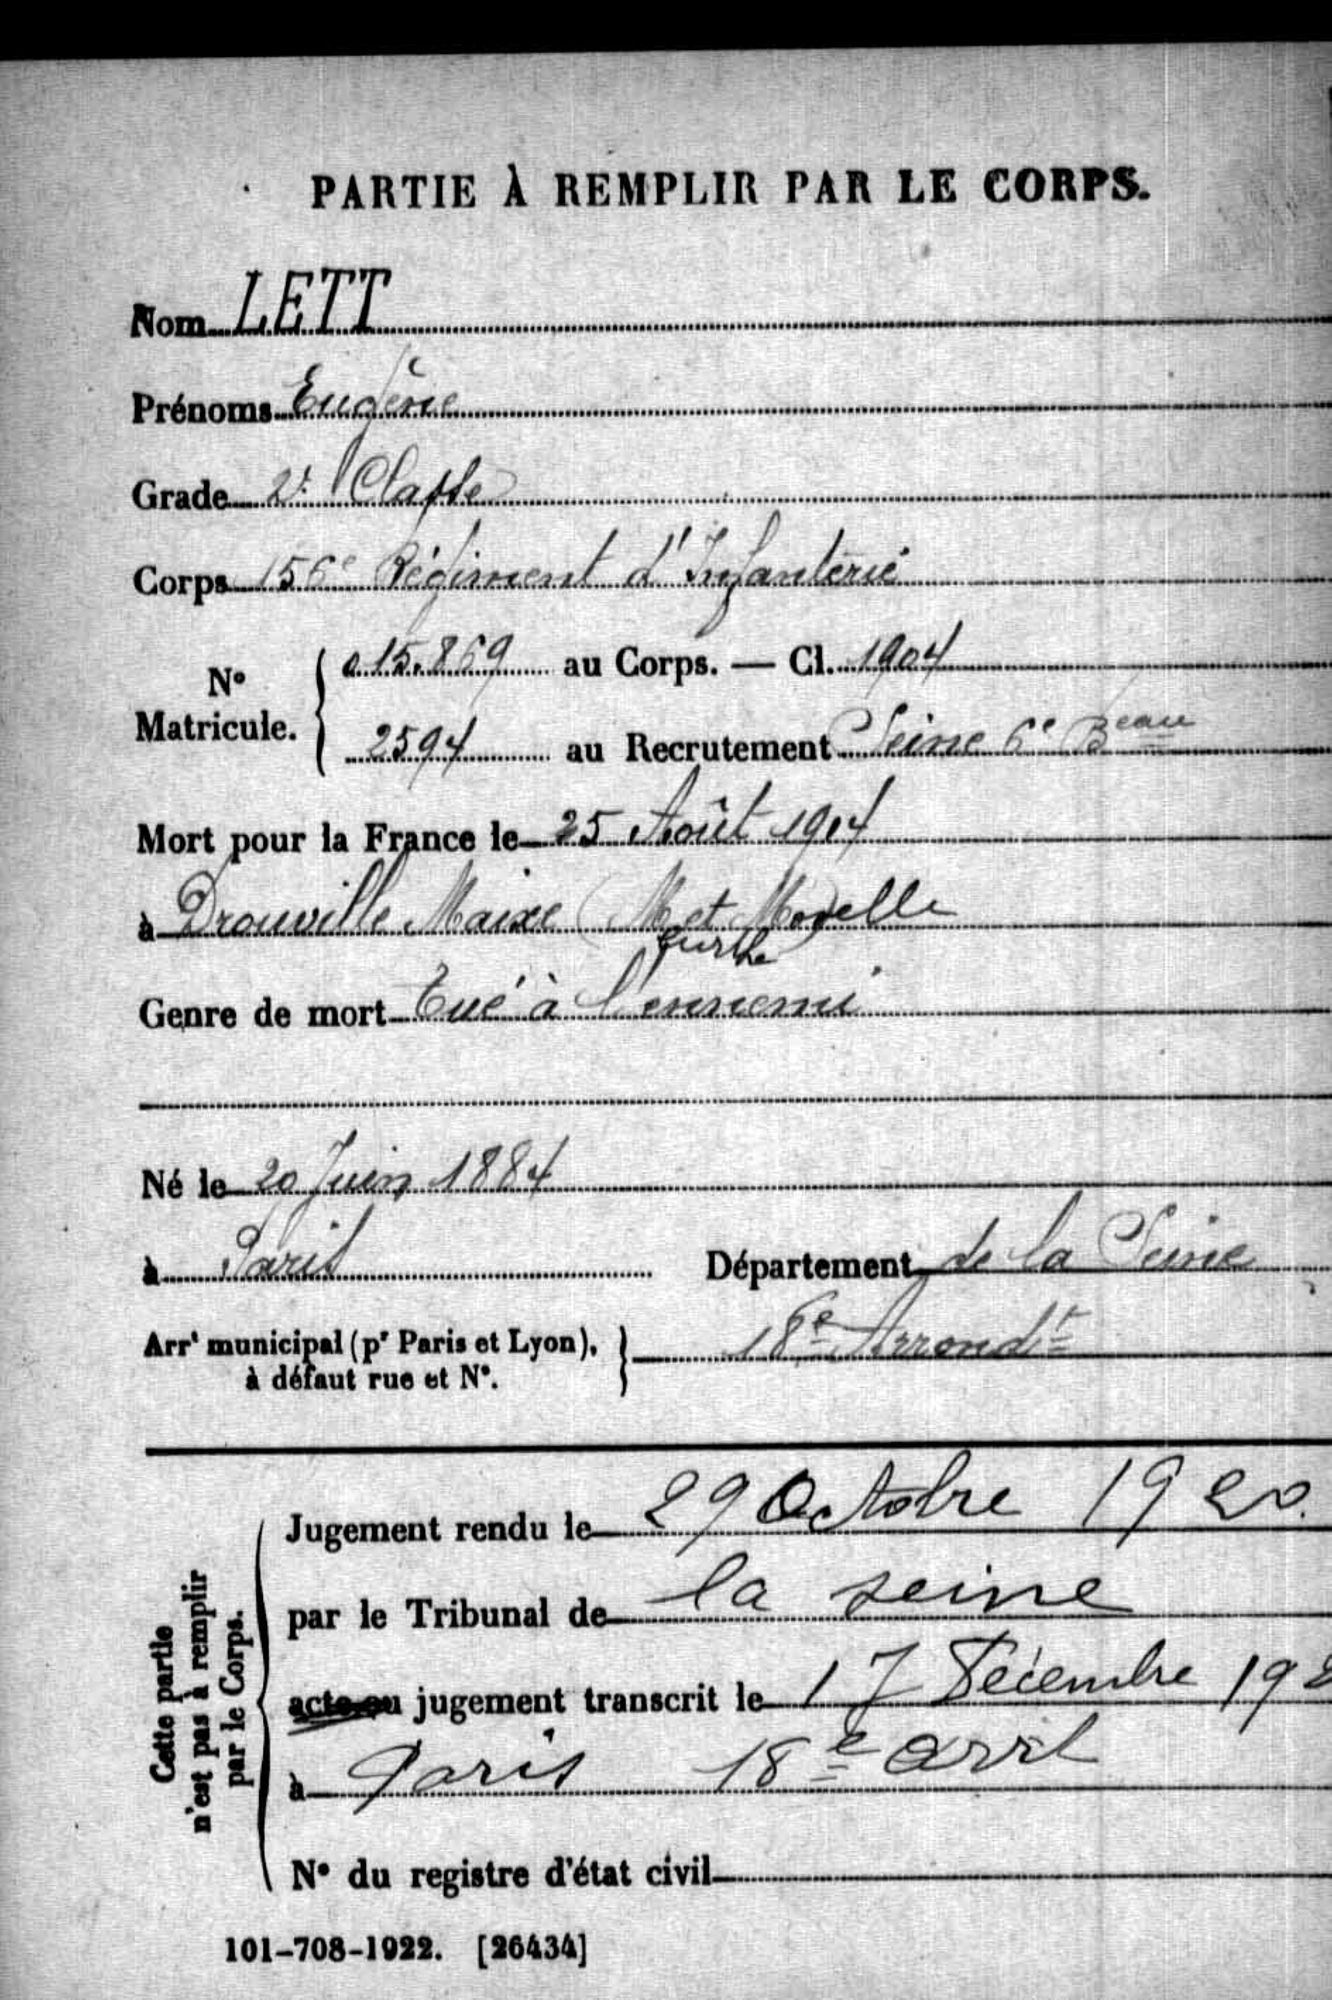 PARTIE À REMPLIR PAR LE CORPS.
Nom LETT
Prénoms Eugène
Grade 2e Classe
Corps 156e Régiment d'Infanterie
No Matricule. 015.869 au Corps. — Cl. 1904
2594 au Recrutement Seine 6e Beau
Mort pour la France le 25 Août 1914
à Drouville Maixe (M et Moselle
eurthe
Genre de mort Tué à l'ennemi
Né le 20 Juin 1884
à Paris Département de la Seine
Arrt municipal (pr Paris et Lyon), 18e Arrondt
à défaut rue et No.
Cette partie
n'est pas à remplir
par le Corps.
Jugement rendu le 29 Octobre 1920.
par le Tribunal de la seine
acte ou jugement transcrit le 17 Décembre 192
à Paris 18e arrt
No du registre d'état civil
101-708-1922. [26434]